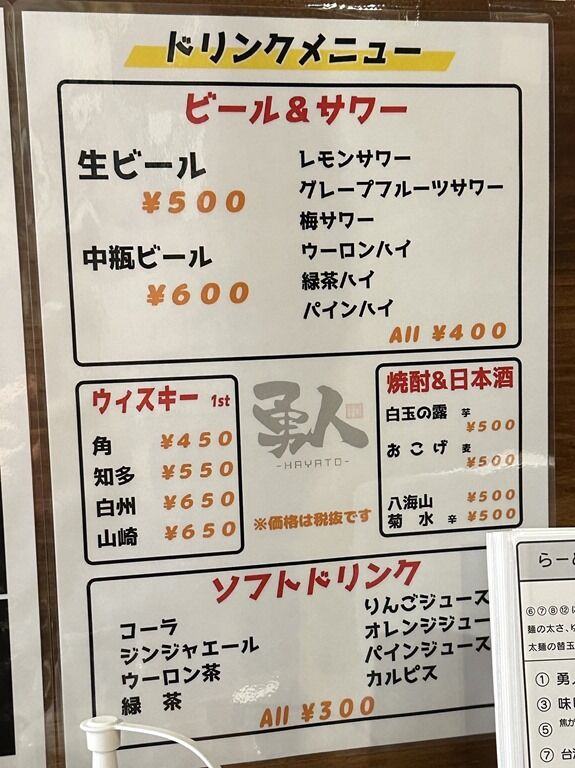 ドリンクメニュー
ビール＆サワー
生ビール
¥500
中瓶ビール
¥600
レモンサワー
グレープフルーツサワー
梅サワー
ウーロンハイ
緑茶ハイ
パインハイ
All ¥400
ウィスキー 1st
角 ¥450
知多 ¥550
白州 ¥650
山崎 ¥650
勇人
-HAYATO-
※価格は税抜です
焼酎&日本酒
白玉の露 芋
¥500
おこげ 麦
¥500
八海山 ¥500
菊水 辛 ¥500
ソフトドリンク
コーラ
ジンジャエール
ウーロン茶
緑 茶
りんごジュース
オレンジジュー
パインジュース
カルピス
All ¥300
らー
⑥⑦⑧⑫
麺の太さ、
太麺の替玉
① 勇
③ 味
⑤ 焦が
⑦ 台